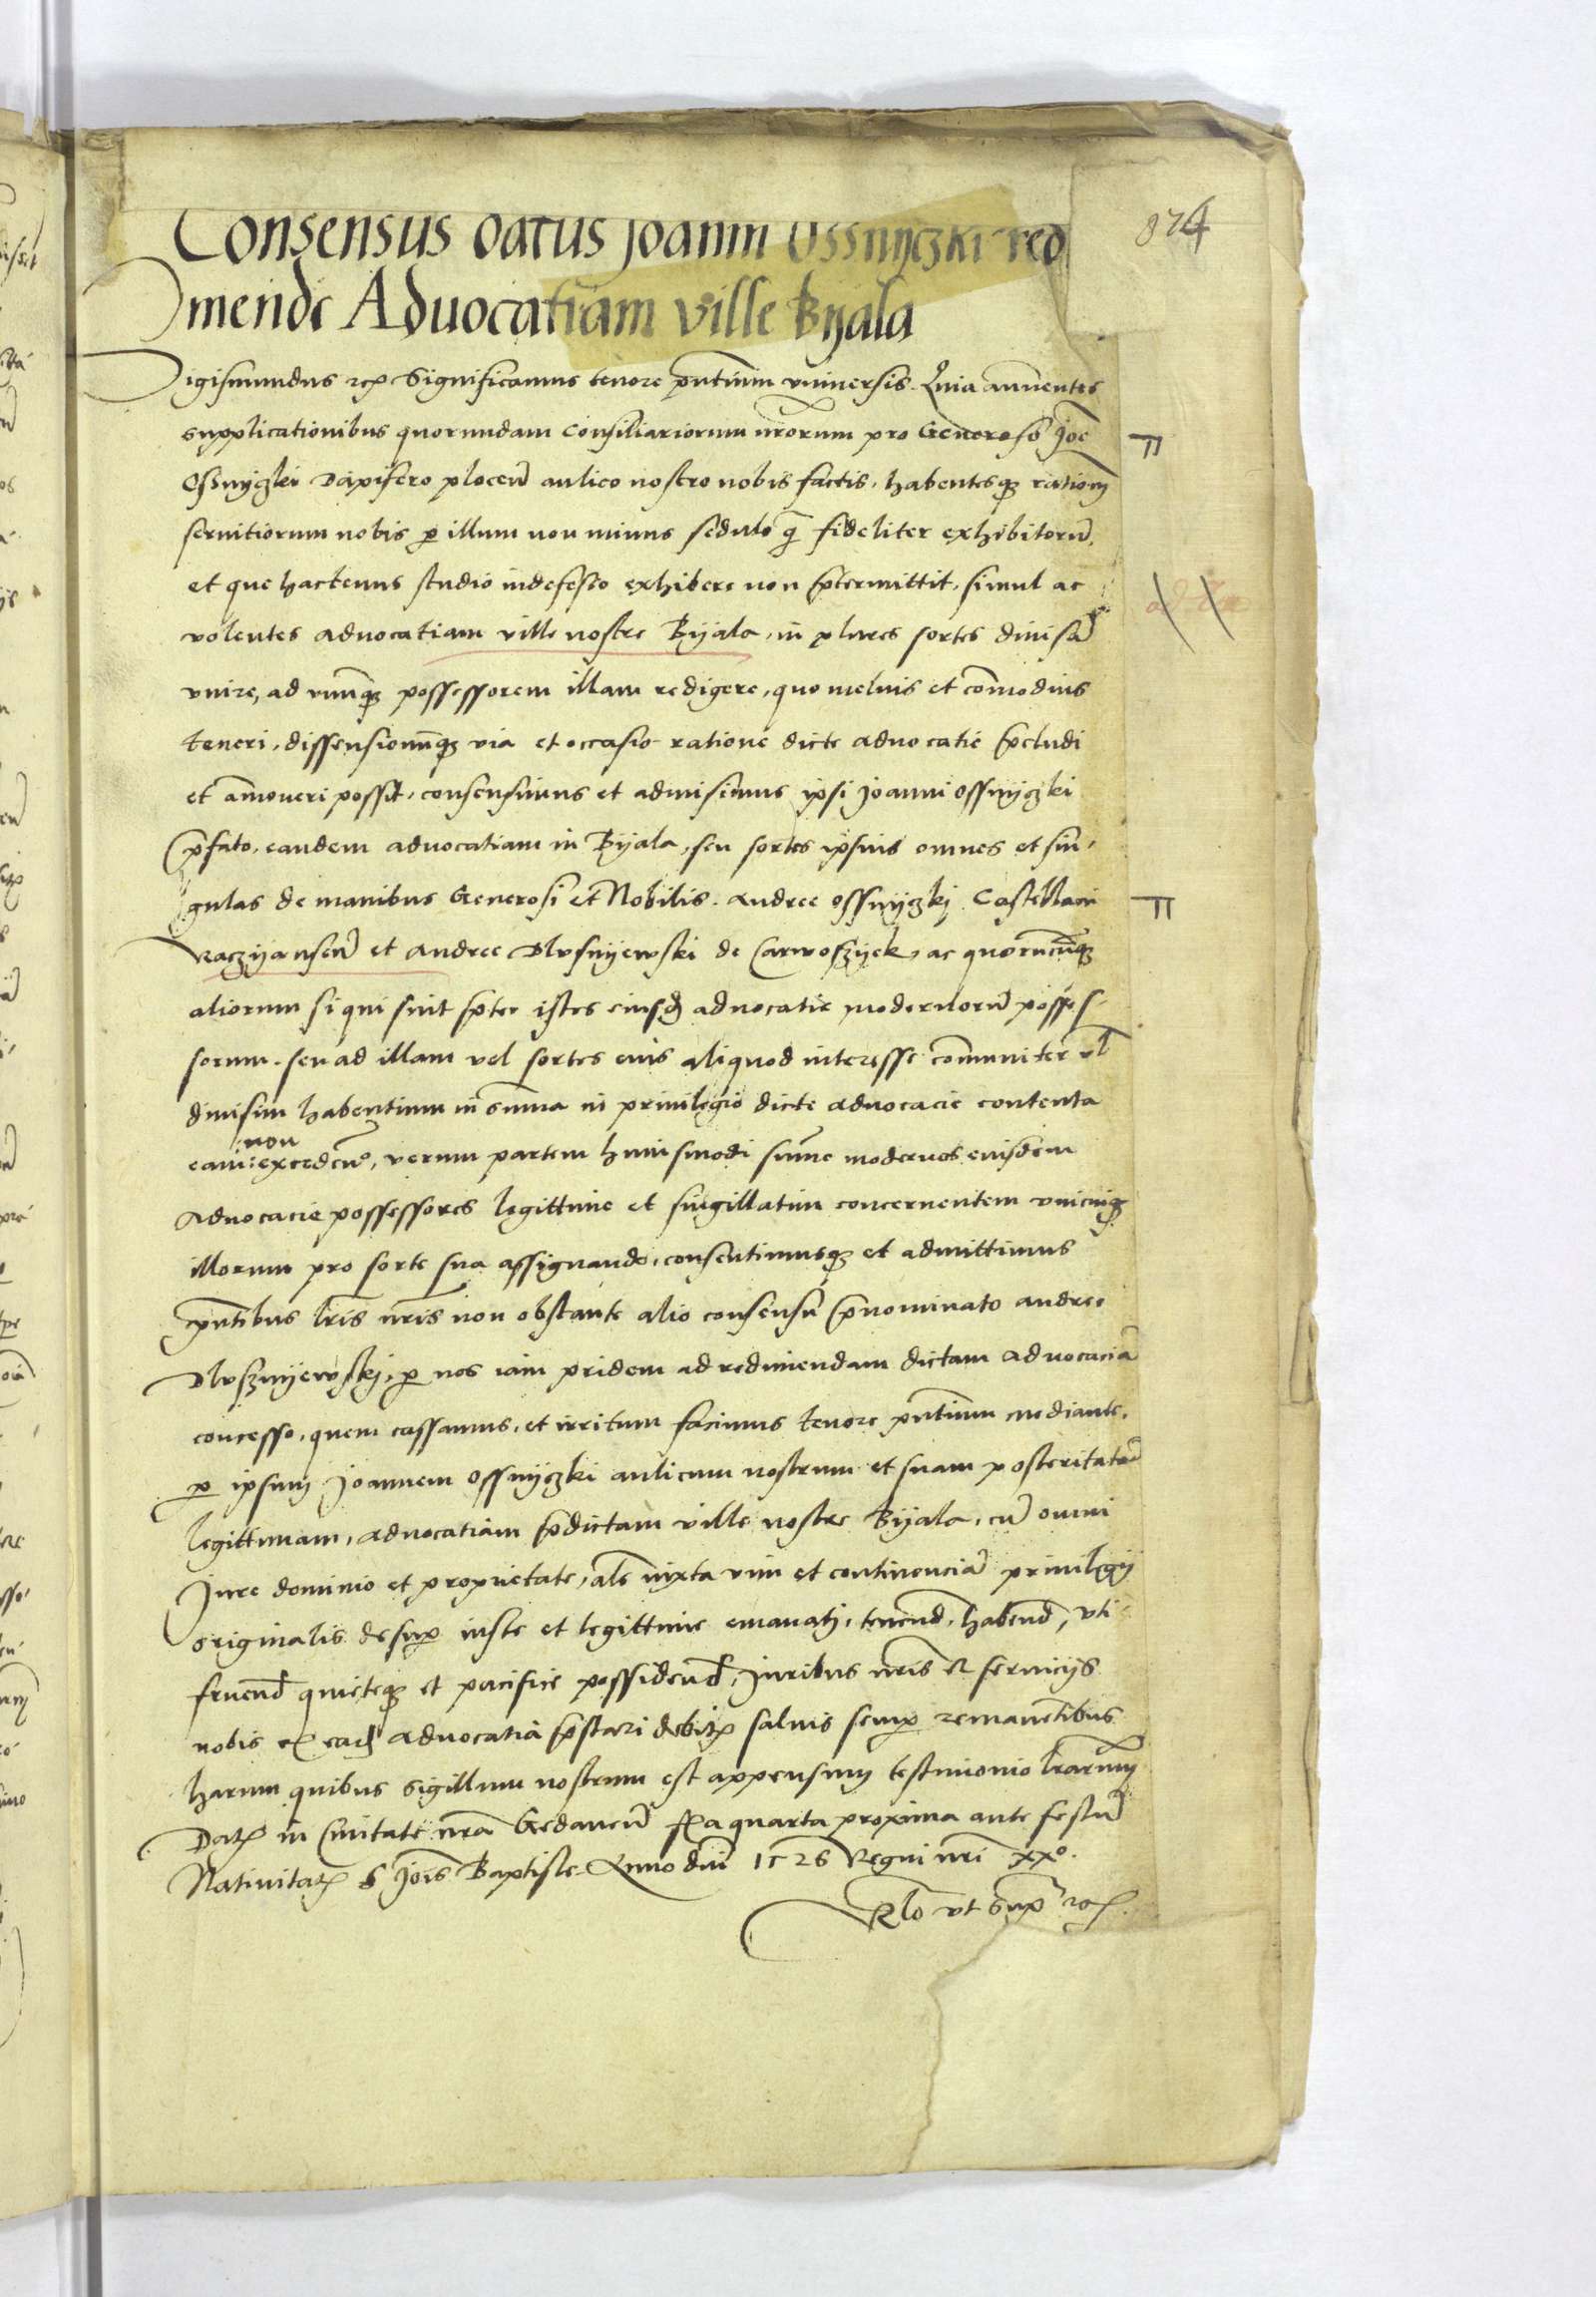 874
Consensus datus Joanni Ossnyczki red
imende Aduocatiam ville Bijala
Sigismundus rex Significamus tenore pntium vniuersis. Quia annuentes
supplicationibus quorundam Consiliariorum nrorum pro Generoso Joe
Ossnyczki Dapifero plocen aulico nostro nobis factis, habentesq rationem
seruitiorum nobis p illum non minus sedulo q fideliter exhibitoru,
et que hactenus studio indefesso exhibere non ptermittit, simul ac
volentes aduocatiam ville nostre Bijala, in plures sortes diuisa
vnire, ad vnuq possessorem illam redigere, quo melius et comodius
teneri, dissensionuq via et occasio ratione dicte aduocatie pcludi
et amoueri possit, consensimus et admisimus ipsi Joanni Ossnyczki
pfato, eandem aduocatiam in Bijala, seu sortes ipsius omnes et sin,
gulas de manibus Generosi et Nobilis. Andree Ossnyczkj Castellani
Raczyansen et Andree Dlusnyewski de Carwoszyek, ac quorucuq
aliorum si qui sint pter istes eiusd aduocatie modernoru posses,
sorum. seu ad illam vel sortes eius aliquod interesse comuniter vl
diuisim habentium in suma in priuilegio dicte aduocacie contenta
non
eam excedeu, verum partem huiusmodi sume modernos eiusdem
Aduocacie possessores legittime et singillatim concernentem vnicuiq
illorum pro sorte sua assignando, consentimusq et admittimus
pntibus lris nris non obstante alio consensu pnominato Andree
Dlusznyewskj, p nos iam pridem ad redimendam dictam aduocacia
concesso, quem cassamus, et irritum facimus tenore pntium mediante,
p ipsum Joannem Ossnyczki aulicum nostrum et suam posteritate
legittimam, aduocatiam pdictam ville nostre Bijala, cu omni
Jure dominio et proprietate, als iuxta vim et continencia priuilegij
originalis desup iuste et legittime emanatj, tenend, habend, vti
fruend quieteq et pacifice possidend, Juribus nris et seruicijs
nobis ex ead aduocatia pstari debitis saluis semp remanetibus
harum quibus Sigillum nostrum est appensum testimonio lrarum
Datum in Ciuitate nra Gedanen feria quarta proxima ante festu
Natiuitatis S Jois Baptiste Anno dni 1526 Regni nri xxo.
Rlo vt sup